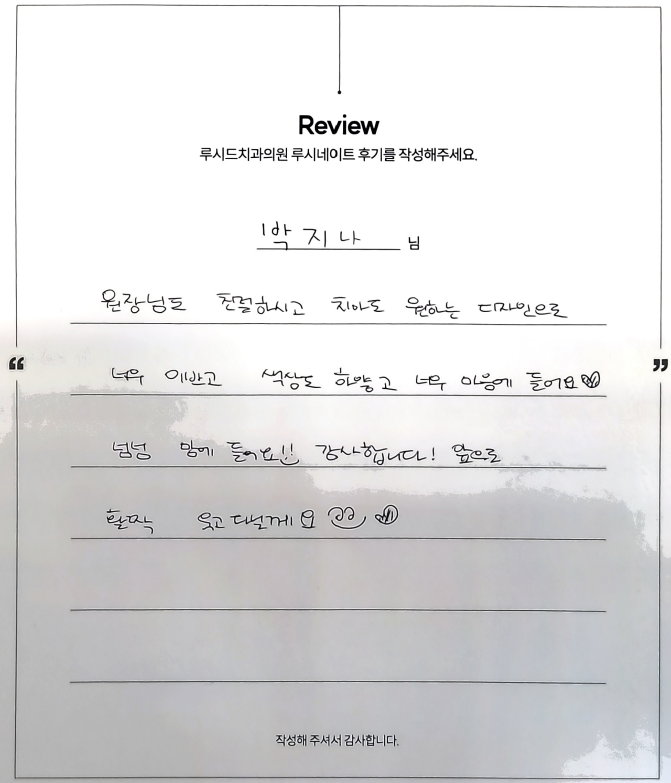 Review
루시드치과의원 루시네이트 후기를 작성해주세요.
박지나 님
원장님도 친절하시고 치아도 원하는 디자인으로
“ 너무 이쁘고 색상도 하얗고 너무 마음에 들어요♡ ”
넘넘 맘에 들어요!! 감사합니다! 앞으로
활짝 웃고 다닐게요
작성해 주셔서 감사합니다.